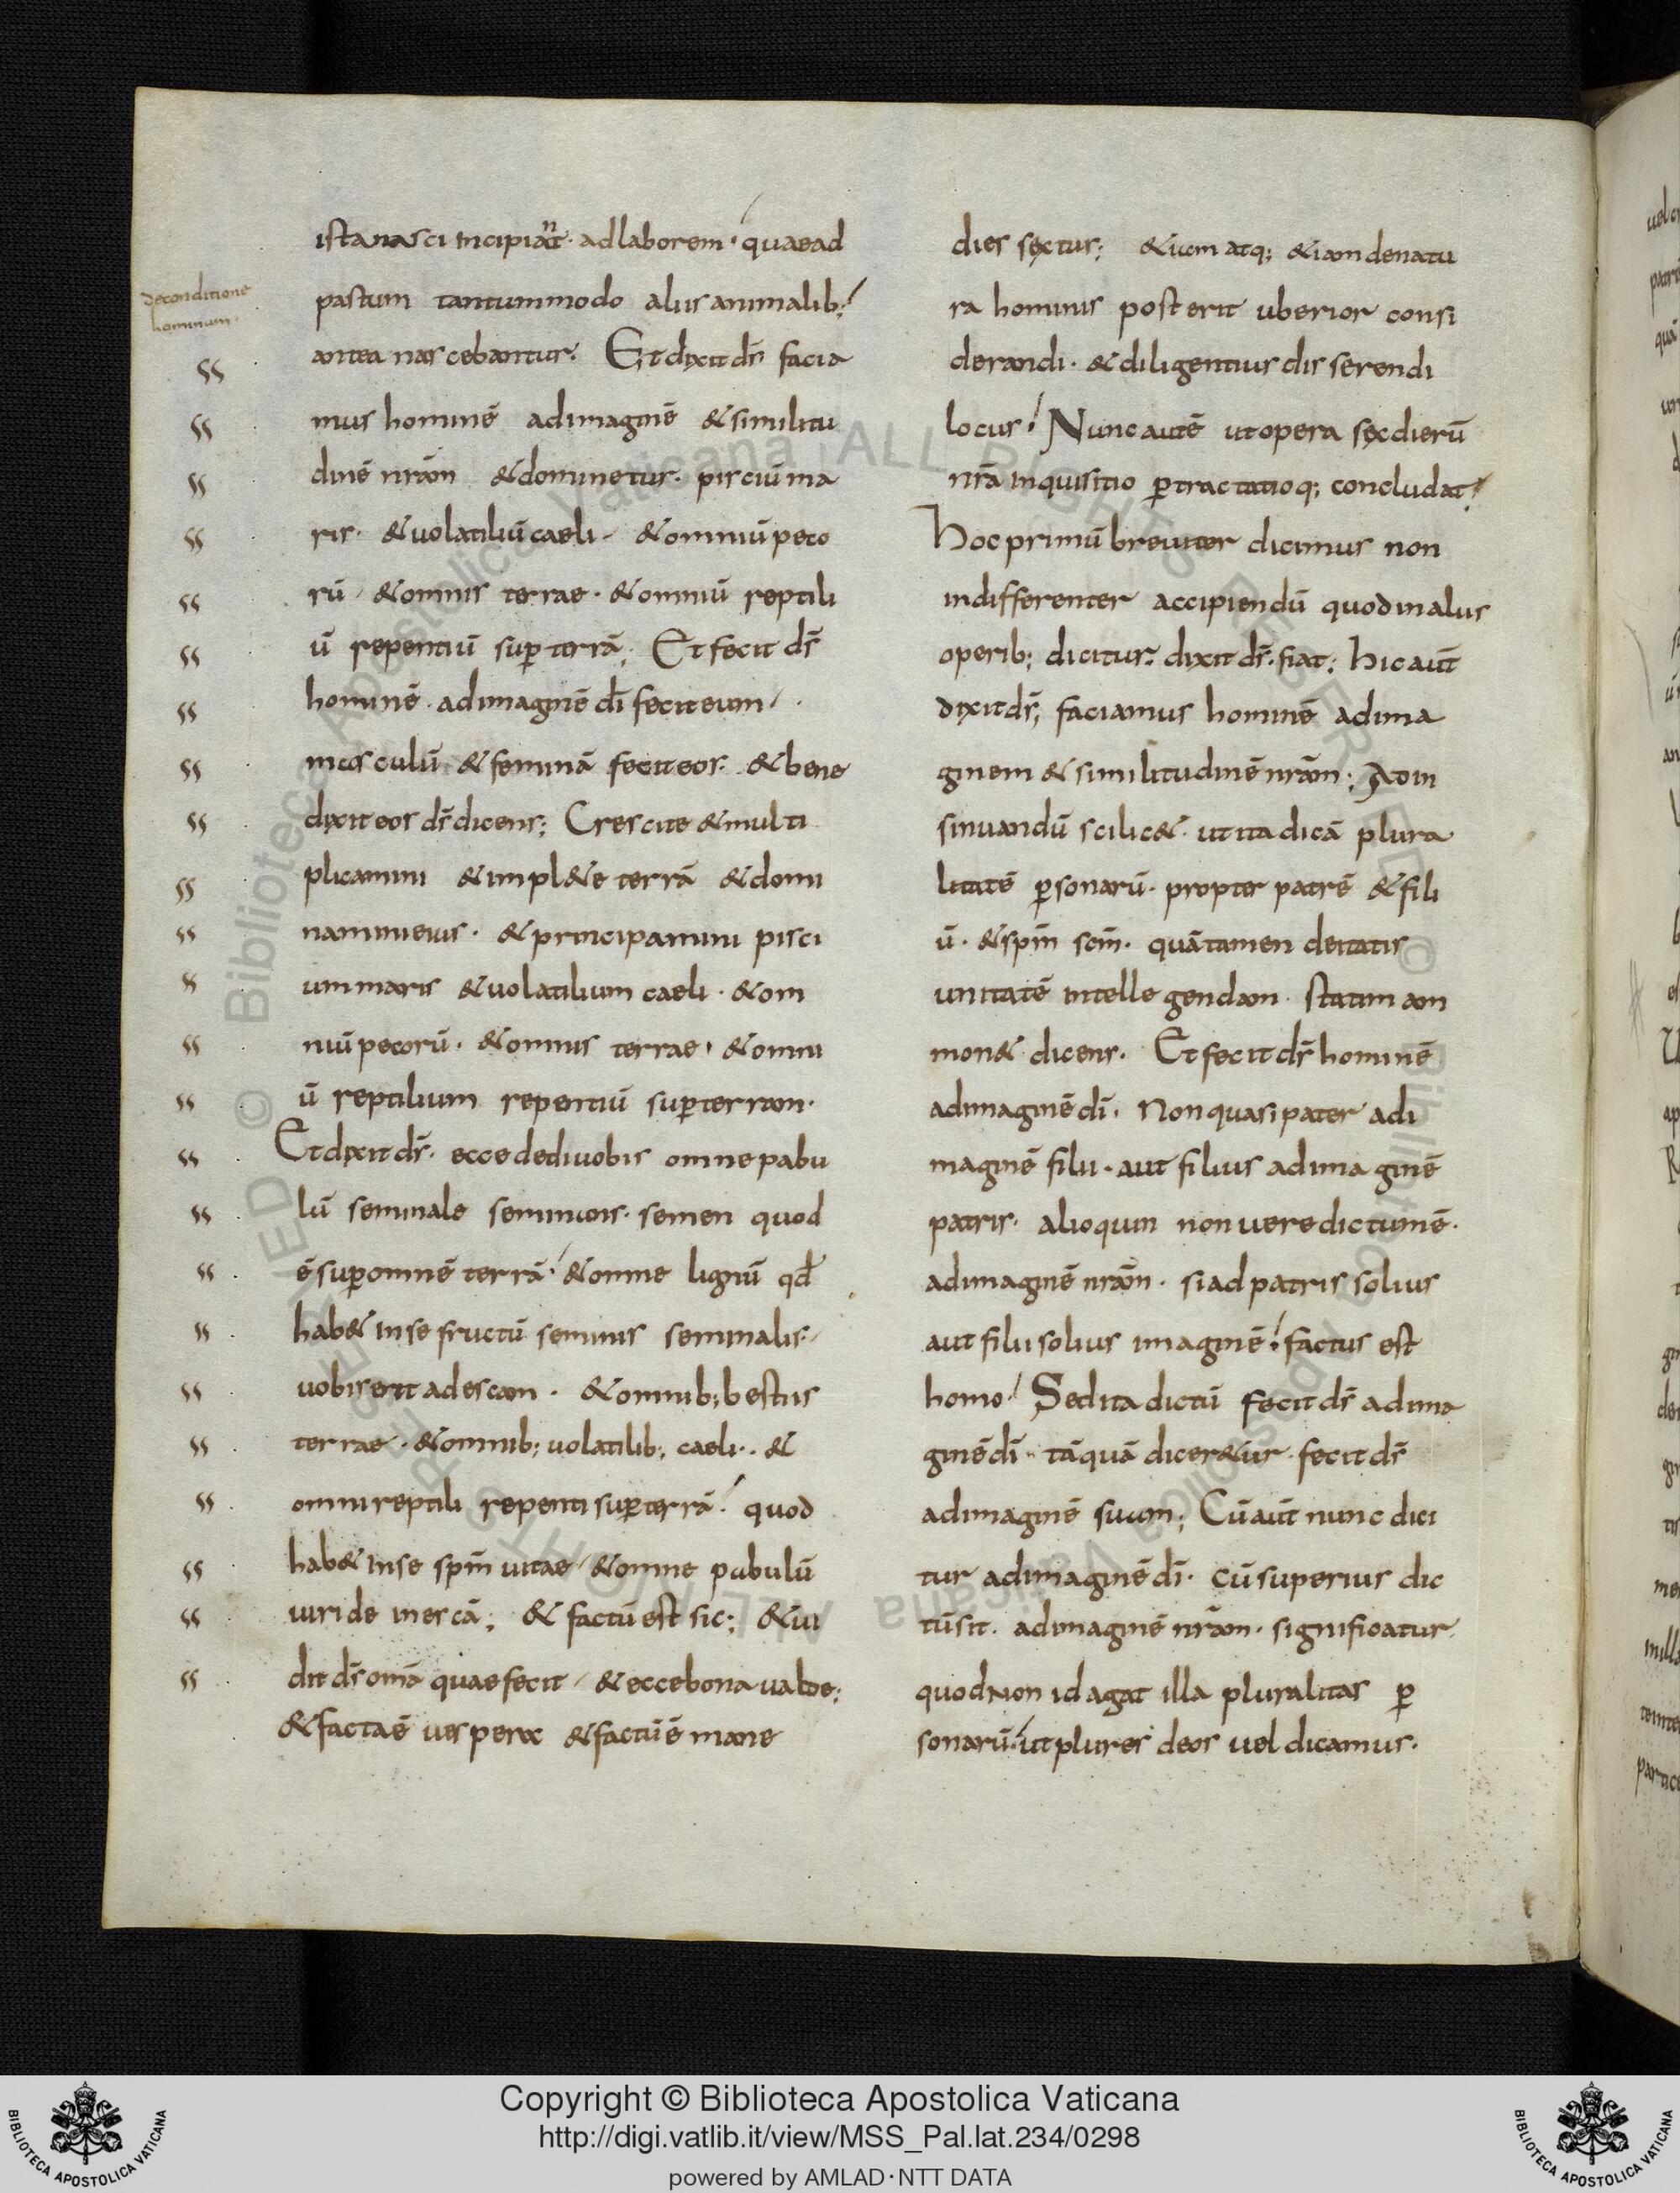 ista nasci incipiant · ad laborem · quae ad
pastum tantummodo aliis animalib;
antea nascebantur: Et dixit ds̄ facia
mus hominē ad imaginē & similitu
dinē nr̄am & dominetur · pisciū ma
ris · & volatiliū caeli · & omniū peco
rū · & omnis terrae · & omniū reptili
ū repentiū sup̱ terrā; Et fecit ds̄
hominē · ad imaginē dī fecit eum ·
masculū & feminā fecit eos · & bene
dixit eos ds̄ dicens; Crescite & multi
plicamini & impl&e terrā & domi
namini eius · & principamini pisci
um maris & volatilium caeli · & om
niū pecorū · & omnis terrae · & omni
ū reptilium repentiū sup̱ terram ·
Et dixit ds̄ · ecce dedi vobis omne pabu
lū seminale seminans · semen quod
ē sup̱ omnē terrā · & omne lignū qd̄
hab& in se fructū seminis seminalis ·
vobis erit ad escam · & omnib; bestiis
terrae · & omnib; volatilib; caeli · &
omni reptili repenti sup̱ terrā · quod
hab& in se spm̄ vitae · & omne pabulū
viride in escā; & factū est sic; & vi
dit ds̄ omā quae fecit · & ecce bona valde;
& facta ē vespera & factū ē mane
de conditione
hominum ·
dies sextus; & iam atq; &iam de natu
ra hominis post erit uberior consi
derandi · & diligentius disserendi
locus · Nunc autē ut opera sex dierū
nr̄a inquisitio p̱tractatioq; concludat ·
Hoc primū breviter dicimus non
indifferenter accipiendū quod in aliis
operib; dicitur: dixit ds̄ · fiat: hic aut̄
dixit ds̄; faciamus hominē ad ima
ginem & similitudinē nr̄am; Ad in
sinuandū scilic& · ut ita dicā plura
litatē p̱sonarū · propter patrē & fili
ū · & spm̄ scm̄ · quā tamen deitatis
unitatē intellegendam · statim am
mon& dicens · Et fecit ds̄ hominē
ad imaginē dī · Non quasi pater ad i
maginē filii · aut filius ad imaginē
patris · alioquin non vere dictum ē ·
ad imaginē nr̄am · si ad patris solius
aut filii solius imaginē · factus est
homo · Sed ita dictū fecit ds̄ ad ima
ginē dī · tāquā dicer&ur · fecit ds̄
ad imaginē suam; Cū aūt nunc dici
tur ad imaginē dī · cū superius dic
tū sit · ad imaginē nr̄am · significatur
quod non id agat illa pluralitas p̱
sonarū · ut plures deos vel dicamus ·
Copyright © Biblioteca Apostolica Vaticana
http://digi.vatlib.it/view/MSS_Pal.lat.234/0298
powered by AMLAD·NTT DATA
BIBLIOTECA APOSTOLICA VATICANA
BIBLIOTECA APOSTOLICA VATICANA